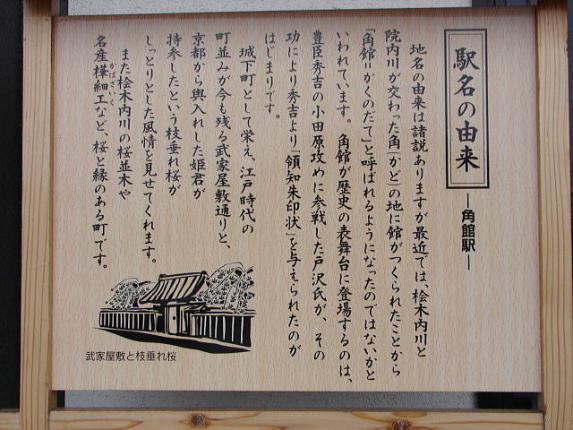 駅名の由来
―角館駅―
地名の由来は諸説ありますが最近では、桧木内川と
院内川が交わった角(かど)の地に館がつくられたことから
「角館=かくのだて」と呼ばれるようになったのではないかと
いわれています。角館が歴史の表舞台に登場するのは、
豊臣秀吉の小田原攻めに参戦した戸沢氏が、その
功により秀吉より「領知朱印状」を与えられたのが
はじまりです。
城下町として栄え、江戸時代の
町並みが今も残る武家屋敷通りと、
京都から輿入れした姫君が
持参したという枝垂れ桜が
しっとりとした風情を見せてくれます。
また桧木内川の桜並木や
名産樺細工など、桜と縁のある町です。
かばざいく
武家屋敷と枝垂れ桜